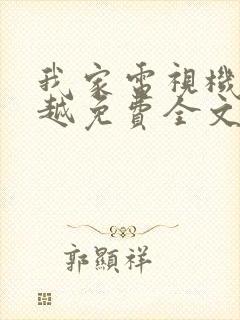 我家電視機
越免費全文
郭顯祥